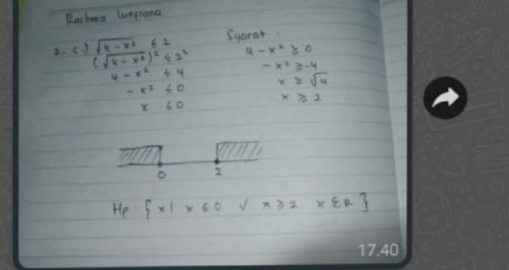 Rachma Lutfiana
2. c.) √4-x² ≤ 2
(√4-x²)² ≤ 2²
4 - x² ≤ 4
- x² ≤ 0
x ≤ 0
Syarat :
4 - x² ≥ 0
- x² ≥ -4
x ≥ √4
x ≥ 2
0 2
Hp : { x | x ≤ 0 ∨ x ≥ 2 x ∈ R }
17.40